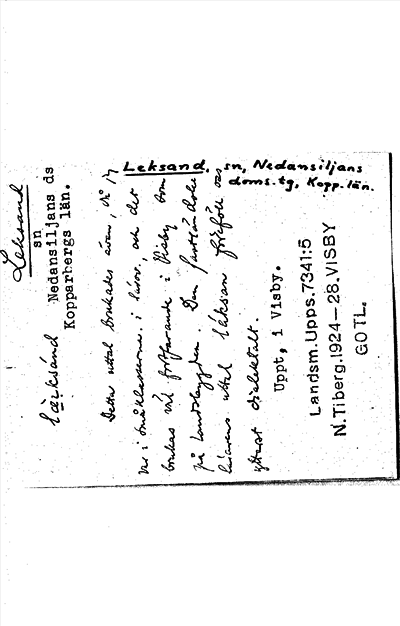 Leksand, sn, Nedansiljans
doms.tg, Kopp.län.
Leksand
sn
Nedansiljans ds
Kopparbergs län.
Detta uttal brukades även, då j
var i småklasserna i lärov., och det
brukas väl fortfarande i Visby som
på landsbygden. Den fastländske
lärarens uttal läksan förföll oss
ytterst dialektalt.
Uppt, i Visby.
Landsm.Upps.7341:5
N.Tiberg.1924-28.VISBY
GOTL.